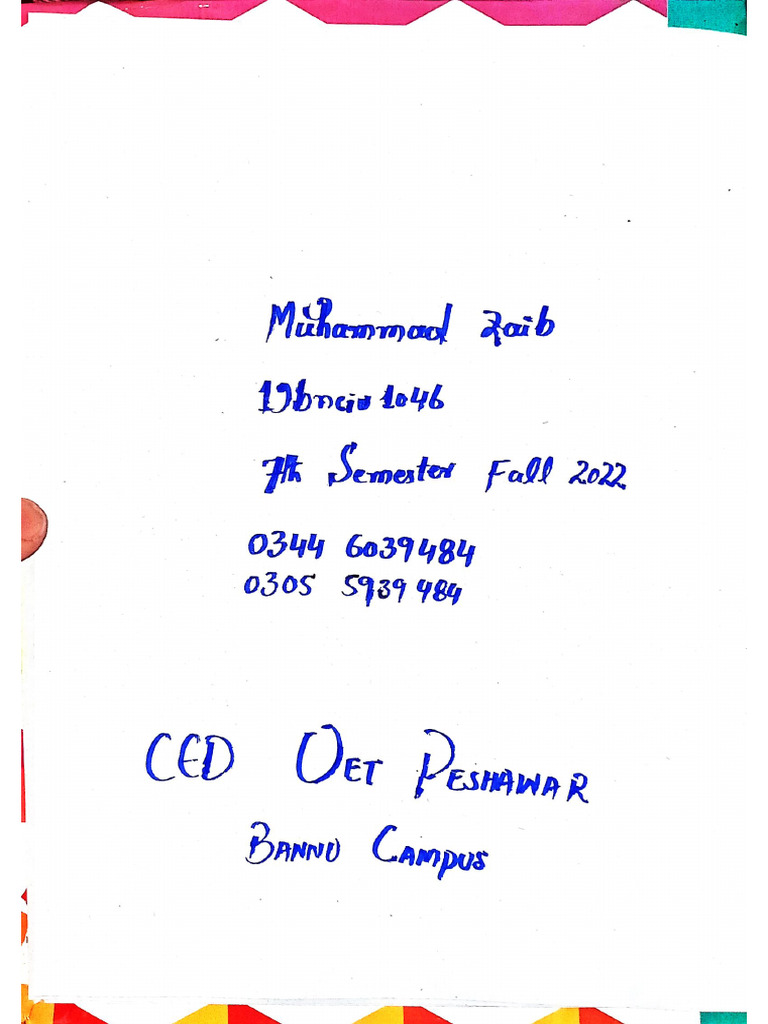 Muhammad Zaib
19bnciv1046
7th Semester Fall 2022
0344 6039484
0305 5939484
CED UET PESHAWAR
BANNU CAMPUS